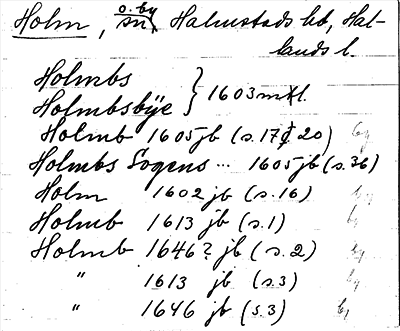 Holm, o. by sn Halmstads hd, Hal-
lands l.
Holmbs
Holmbsbÿe } 1603 mtl.
Holmb 1605 jb (s. 17 & 20) by
Holmbs Sogens ... 1605 jb (s. 36)
Holm 1602 jb (s. 16) by
Holmb 1613 jb (s. 1) by
Holmb 1646? jb (s. 2) by
" 1613 jb (s. 3) by
" 1646 jb (s. 3) by